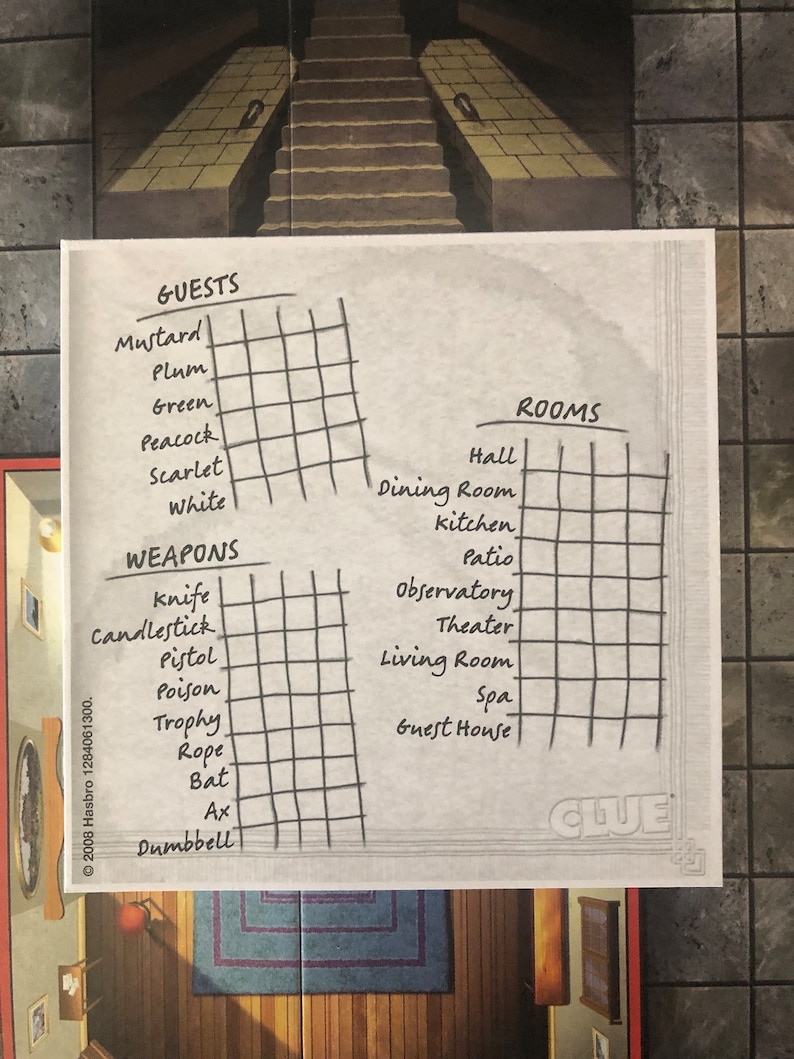 GUESTS
Mustard
Plum
Green
Peacock
Scarlet
White
WEAPONS
Knife
Candlestick
Pistol
Poison
Trophy
Rope
Bat
Ax
Dumbbell
ROOMS
Hall
Dining Room
Kitchen
Patio
Observatory
Theater
Living Room
Spa
Guest House
CLUE®
© 2008 Hasbro 1284061300.